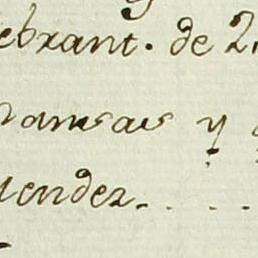 ebrant. de 2
mansas y
endez....